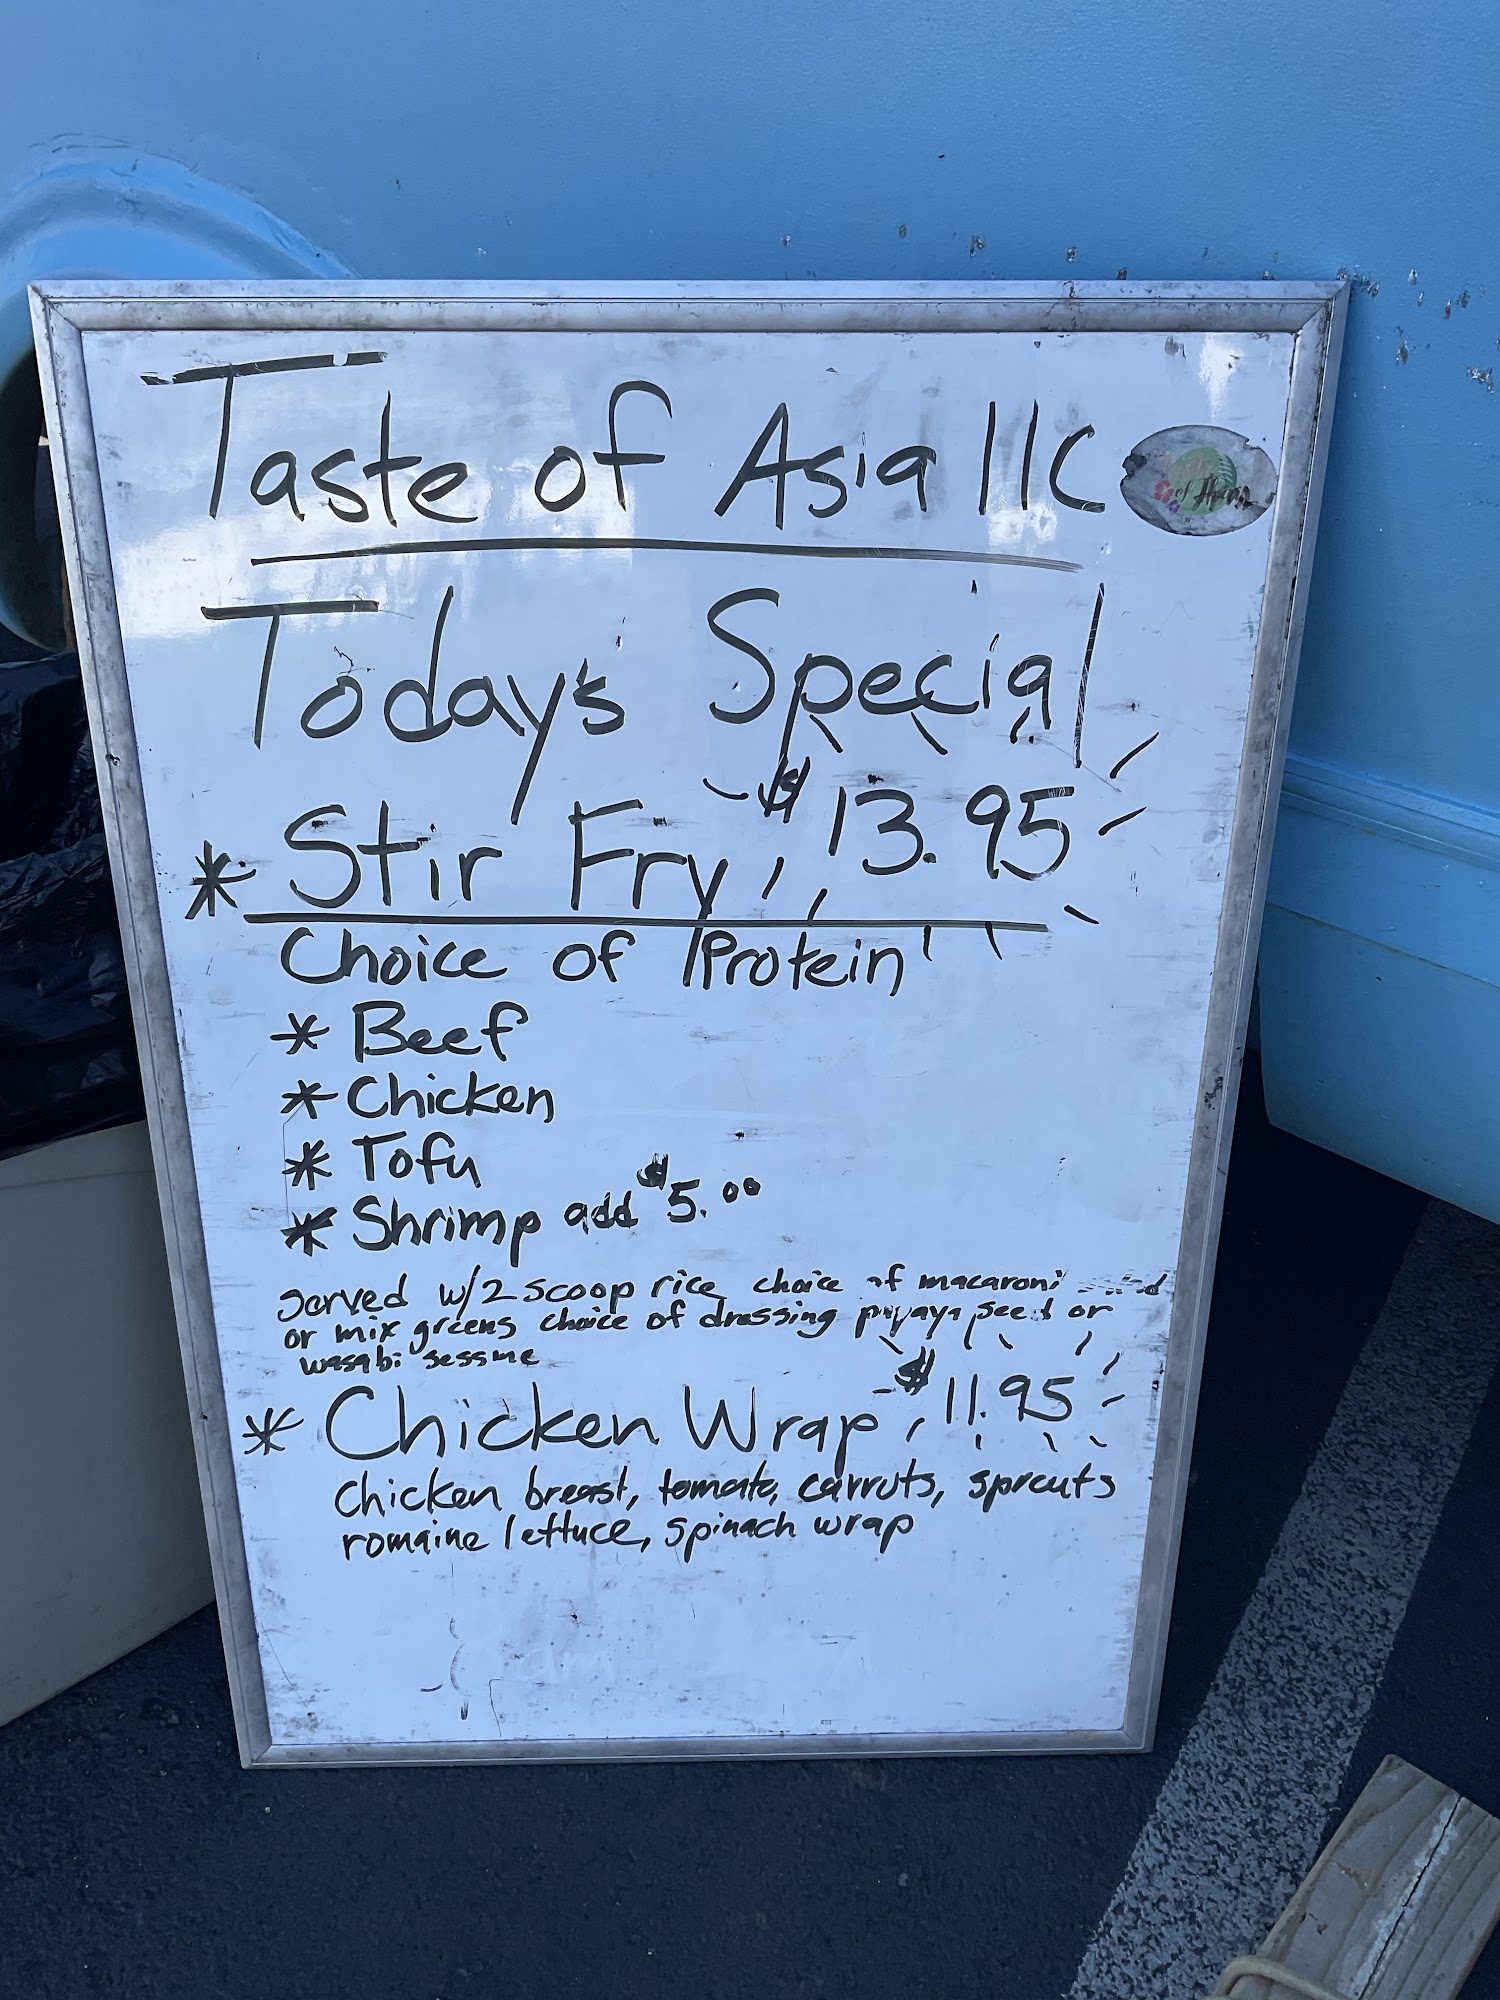 Taste of Asia llC
Today's Special
* Stir Fry $13.95
Choice of Protein
* Beef
* Chicken
* Tofu
* Shrimp add $5.00
served w/2 scoop rice choice of macaroni
or mix greens choice of dressing papaya seed or
wasabi sessme
* Chicken Wrap $11.95
chicken breast, tomato, carruts, sprouts
romaine lettuce, spinach wrap